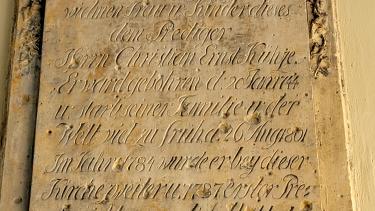 widmen Frau u. Kinder dieses
dem Prediger
Herrn Christian Ernst
Er ward gebohren d. 20 Janr
u. starb seiner Familie u. der
Welt viel zu früh d. 26 Aug. 1801
Im Jahr 1784 wurde er bey dieser
Kirche 1787 Pre-